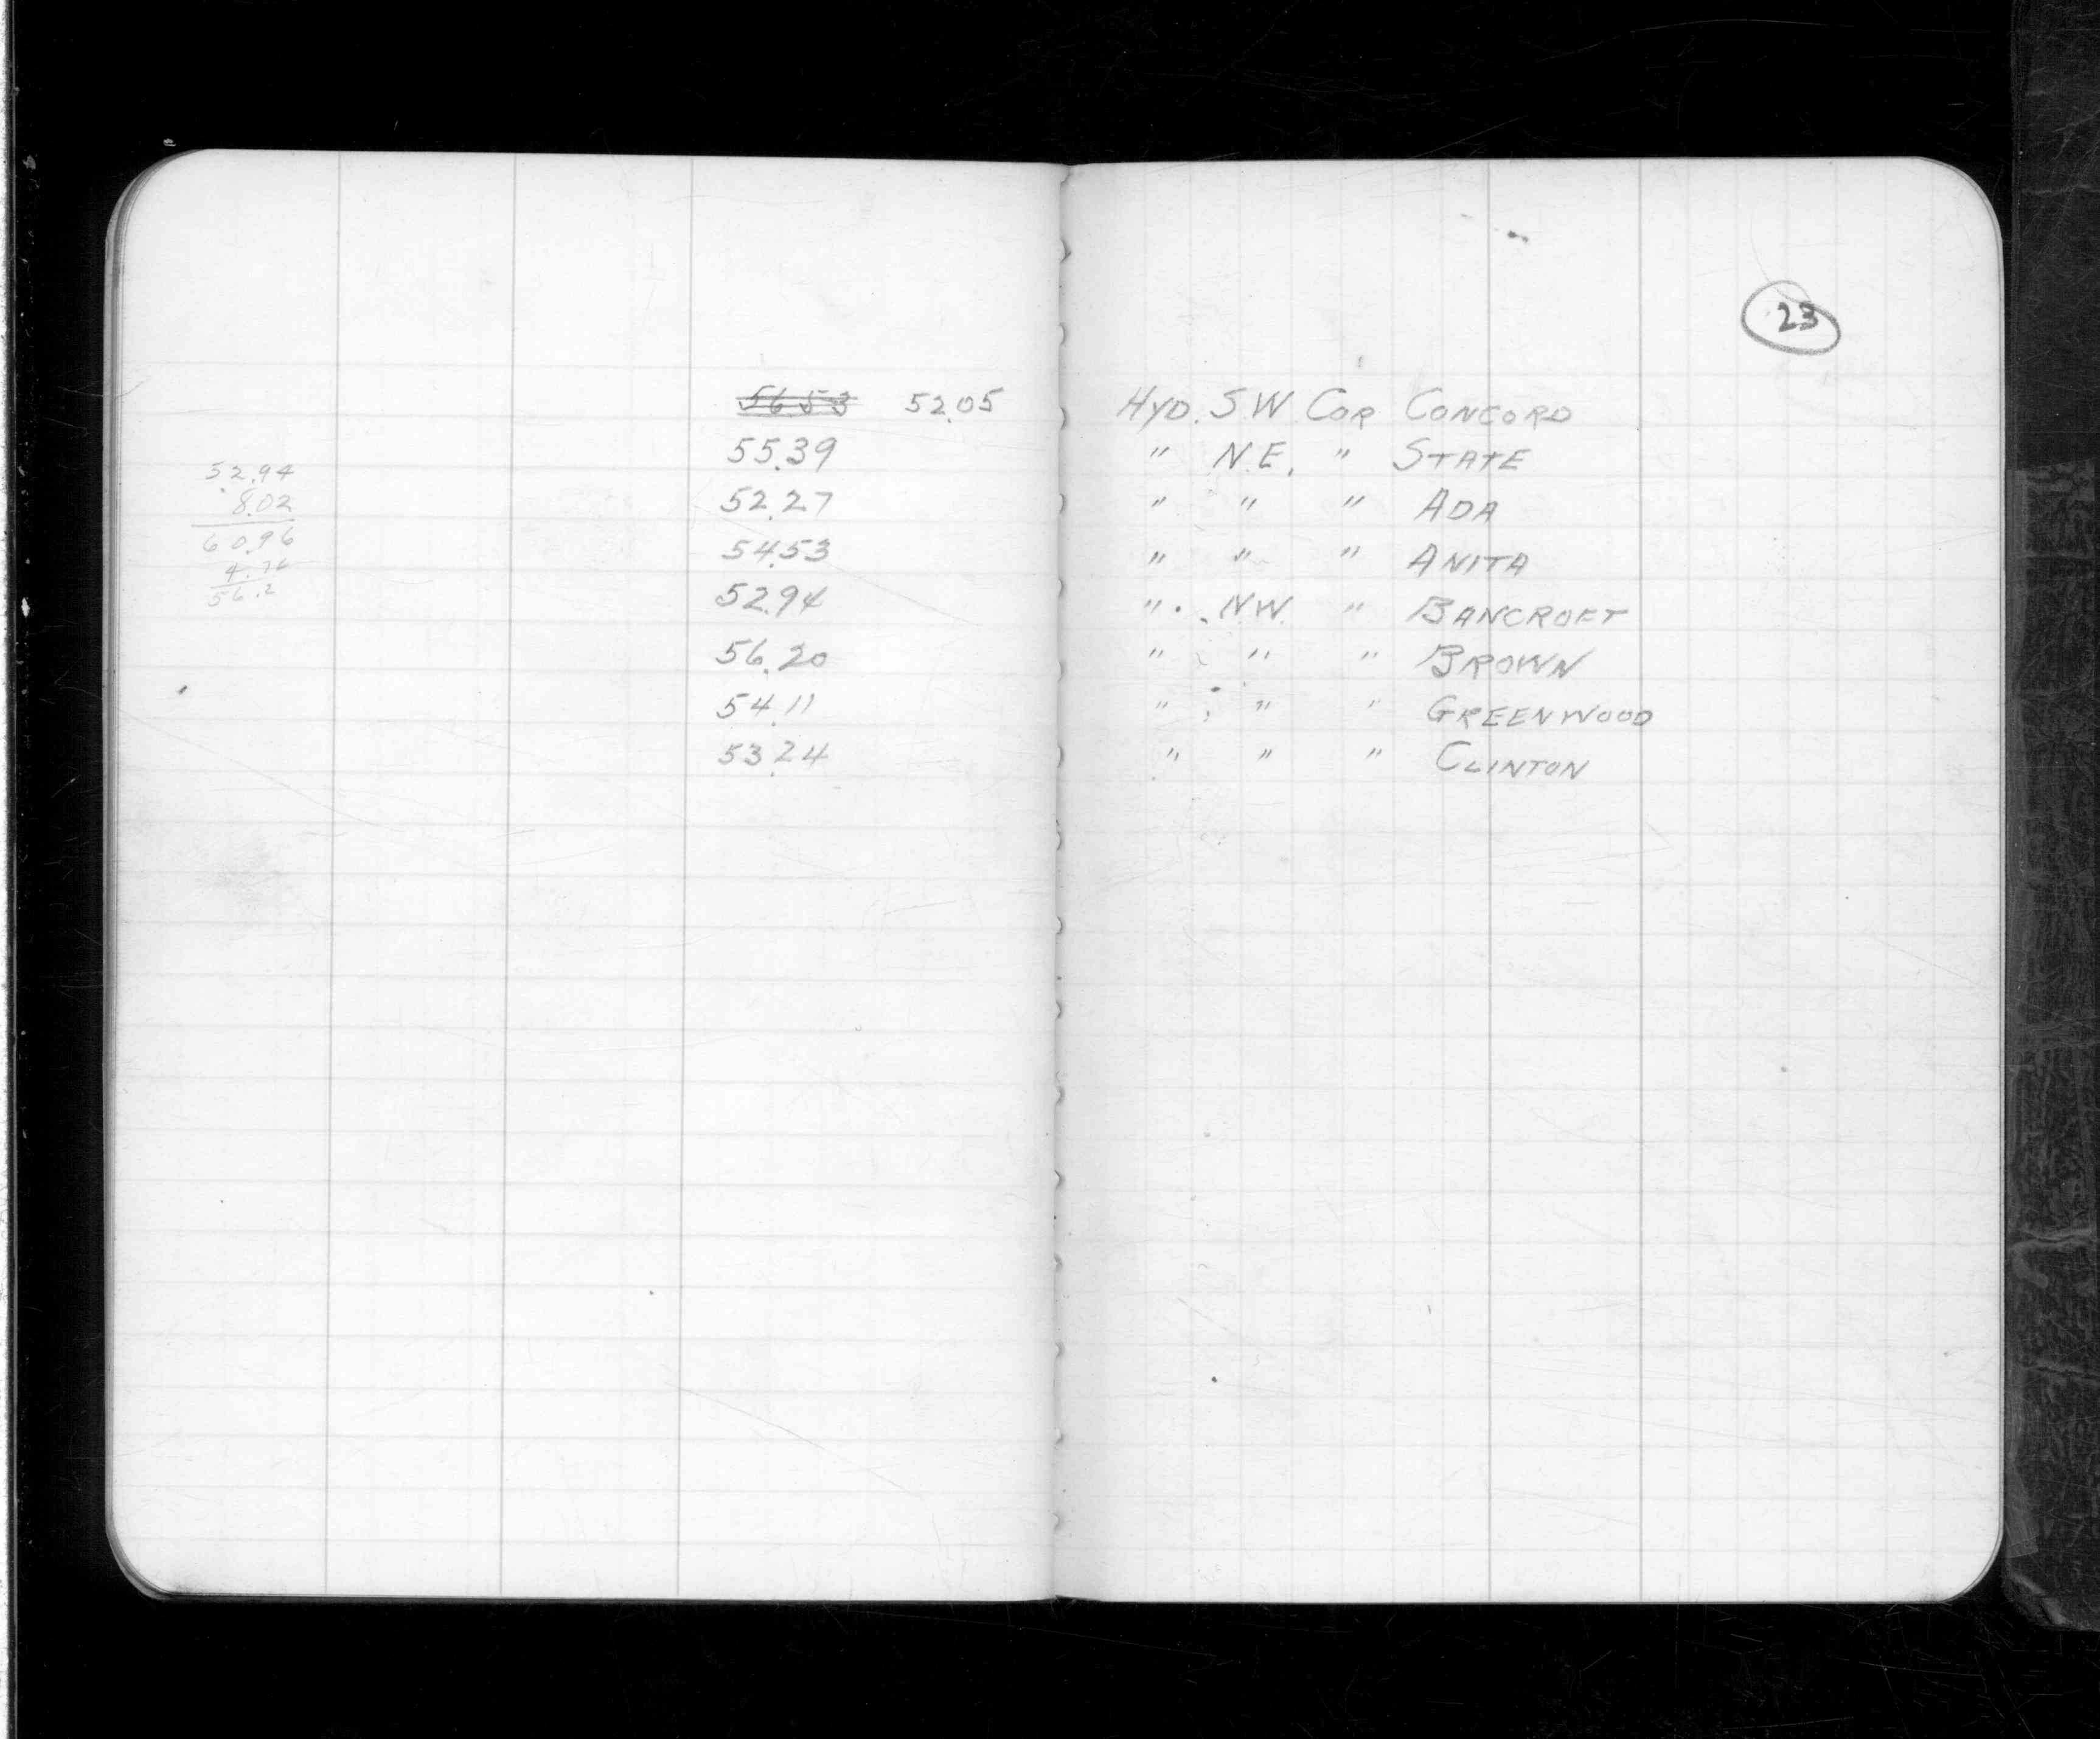 23
~~56.53~~ 52.05 HYD. S.W. COR CONCORD
55.39 " N.E. " STATE
52.27 " " " ADA
54.53 " " " ANITA
52.94 " NW. " BANCROFT
56.20 " " " BROWN
54.11 " " " GREENWOOD
53.24 " " " CLINTON
52.94
8.02
60.96
4.76
56.2